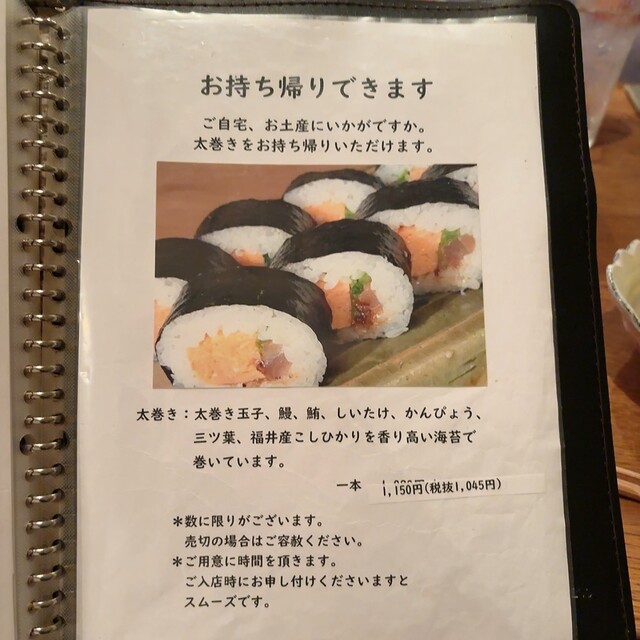 お持ち帰りできます
ご自宅、お土産にいかがですか。
太巻きをお持ち帰りいただけます。
太巻き：太巻き玉子、鰻、鮪、しいたけ、かんぴょう、
三ツ葉、福井産こしひかりを香り高い海苔で
巻いています。
一本 1,150円(税抜1,045円)
＊数に限りがございます。
売切の場合はご容赦ください。
＊ご用意に時間を頂きます。
ご入店時にお申し付けくださいますと
スムーズです。